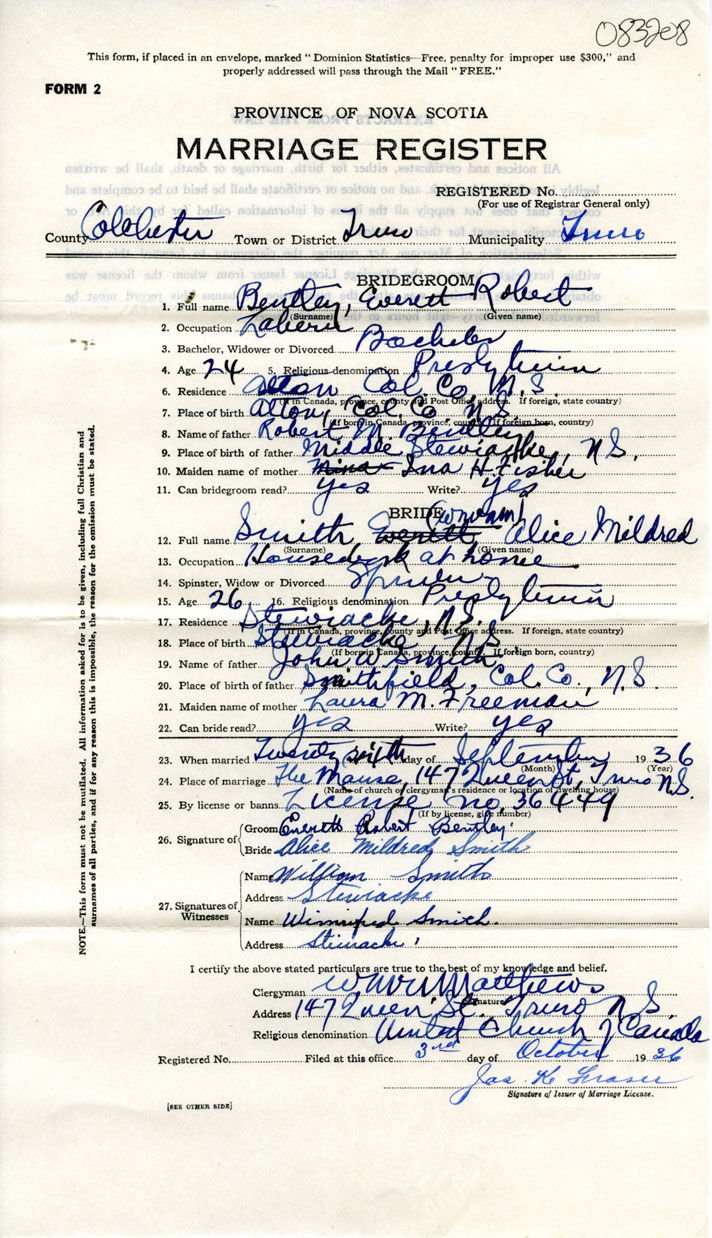 083208
This form, if placed in an envelope, marked "Dominion Statistics—Free, penalty for improper use $300," and
properly addressed will pass through the Mail "FREE."
FORM 2
PROVINCE OF NOVA SCOTIA
MARRIAGE REGISTER
REGISTERED No.
(For use of Registrar General only)
County Colchester Town or District Truro Municipality Truro
BRIDEGROOM
1. Full name Bentley, Everett Robert
(Surname) (Given name)
2. Occupation Laborer
3. Bachelor, Widower or Divorced Bachelor
4. Age 24 5. Religious denomination Presbyterian
6. Residence Alton Col. Co., N.S.
(If in Canada, province, county and Post Office address. If foreign, state country)
7. Place of birth Alton, Col. Co N.S.
(If born in Canada, province, county. If foreign born, country)
8. Name of father Robert M. Bentley
9. Place of birth of father Middle Stewiacke, N.S.
10. Maiden name of mother Nina Ina H. Fisher
11. Can bridegroom read? yes Write? yes
BRIDE
12. Full name Smith, Everett Alice Mildred
(Surname) (Given name)
13. Occupation Housework at home
14. Spinster, Widow or Divorced Spinster
15. Age 26 16. Religious denomination Presbyterian
17. Residence Stewiacke, N.S.
(If in Canada, province, county and Post Office address. If foreign, state country)
18. Place of birth Stewiacke, N.S.
(If born in Canada, province, county. If foreign born, country)
19. Name of father John W Smith
20. Place of birth of father Smithfield, Col. Co., N.S.
21. Maiden name of mother Laura M. Freeman
22. Can bride read? yes Write? yes
23. When married Twenty sixth day of September 1936
(Month) (Year)
24. Place of marriage The Manse, 147 Queen St, Truro N.S.
(Name of church or clergyman's residence or location of dwelling house)
25. By license or banns License no. 36449
(If by license, give number)
26. Signature of
Groom Everett Robert Bentley
Bride Alice Mildred Smith
27. Signatures of Witnesses
Name William Smith
Address Stewiacke
Name Winnifred Smith.
Address Stewiacke
NOTE.—This form must not be mutilated. All information asked for is to be given, including full Christian and
surnames of all parties, and if for any reason this is impossible, the reason for the omission must be stated.
I certify the above stated particulars are true to the best of my knowledge and belief.
Clergyman Matthews
(Signature)
Address 147 Queen St. Truro N.S.
Religious denomination United Church of Canada
Registered No. Filed at this office 3rd day of October 1936
Jas. K Fraser
Signature of Issuer of Marriage License.
[SEE OTHER SIDE]